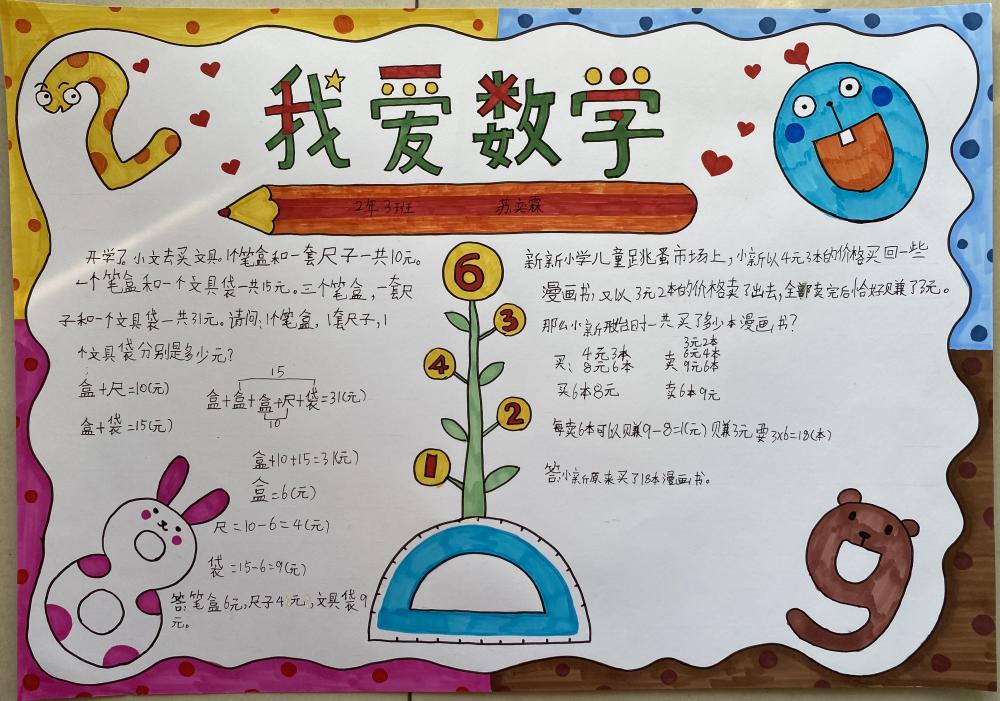 我爱数学
2年3班 苏奕霖
开学了,小文去买文具,1个笔盒和一套尺子一共10元。
一个笔盒和一个文具袋一共15元。三个笔盒,一套尺
子和一个文具袋一共31元。请问:1个笔盒,1套尺子,1
个文具袋分别是多少元?
盒+尺=10(元)
盒+袋=15(元)
15
盒+盒+盒+尺+袋=31(元)
10
盒+10+15=31(元)
盒=6(元)
尺=10-6=4(元)
袋=15-6=9(元)
答:笔盒6元,尺子4元,文具袋9
元。
6
3
4
2
1
新新小学儿童跳蚤市场上,小新以4元3本的价格买回一些
漫画书,又以3元2本的价格卖了出去,全部卖完后恰好赚了3元。
那么小新当时一共买了多少本漫画书?
买:4元3本
8元6本
卖 3元2本
6元4本
9元6本
买6本8元 卖6本9元
每卖6本可以赚9-8=1(元) 赚3元要3×6=18(本)
答:小新原来买了18本漫画书。